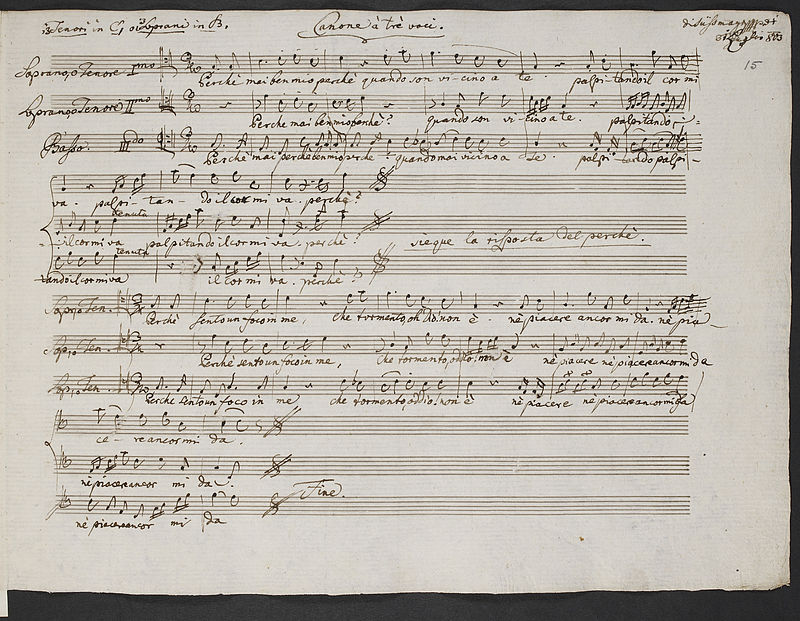 3 Tenori in C, o 3 Soprani in B. Canone à trè voci.
15
Soprano, o Tenore Imo
Perchè mai ben mio perchè quando son vi-cino a te. palpi-tando il cor mi
Soprano, o Tenore IImo
Perchè mai ben mio perchè? quando son vi-cino a te. palpitando i-
Basso. III do
Perchè mai perchè ben mio perche quando mai vicino a te. palpi-tando palpi-
va. palpi-tan-do il cor mi va. perchè?
tenuta
il cor mi va palpitando il cor mi va. perchè? sieque la risposta del perchè.
tenuta
tando il cor mi va il cor mi va. perchè?
Sop: o Ten.
Perchè sento un foco in me, che tormento, oh dio! non è. nè piacere ancor mi da. nè pia-
Sop: o Ten.
Perchè sento un foco in me, che tormento, oddio! non è nè piacere nè piacere ancor mi da
Sop: o Ten.
Perche sento un foco in me che tormento, oddio! non è nè piacere nè piacere ancor mi da
ce-re ancor mi da.
nè piacere ancor mi da.
Fine.
nè piacere ancor mi da